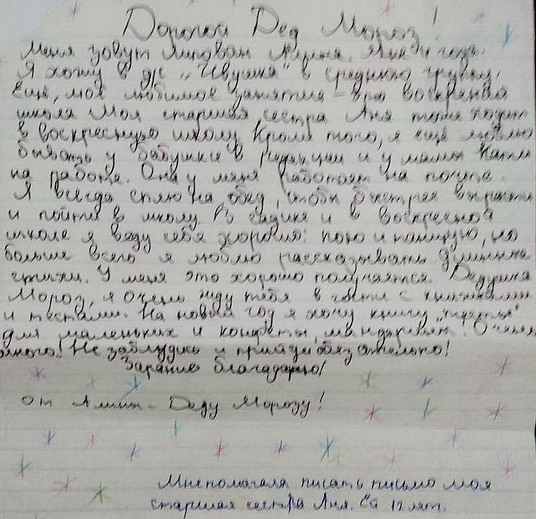 Дорогой Дед Мороз!
Меня зовут Мне 4 года.
Я хожу в д/с "Ивушка" в среднюю группу.
Ещё, моё любимое занятие - это воскресная
школа Моя старшая сестра Аня тоже ходит
в воскресную школу. Кроме того, я ещё люблю
бывать у бабушки в редакции и у мамы Кати
на работе. Она у меня работает на почте.
Я всегда сплю на обед, чтобы быстрее вырасти
и пойти в школу. В садике и в воскресной
школе я веду себя хорошо: пою и танцую, но
больше всего я люблю рассказывать длинные
стихи. У меня это хорошо получается Дедушка
Мороз, я очень жду тебя в гости с
и На новый год я хочу книгу
для маленьких и конфеты, мандарины! Очень
много. Не заблудись и приходи обязательно!
Зарание благодарю!
От Деду Морозу!
Мне помогала писать письмо моя
старшая сестра Аня. Ей 12 лет.